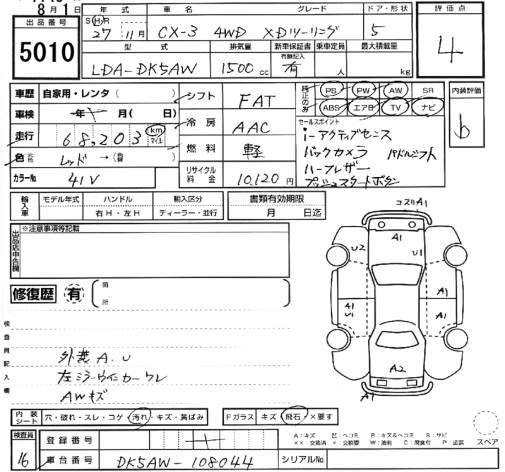 8月1日
出品番号
5010
年式
SHR
27年11月
車名
CX-3 4WD
グレード
XDツーリング
ドア・形状
5
評価点
4
型式
LDA-DK5AW
排気量
1500cc
新車保証書
有無記入
有
乗車定員
人
最大積載量
kg
車歴
自家用・レンタ( )
車検
年 月( 日)
走行
68,203 km マイル
色
レッド→( )
カラーNo
41V
シフト
FAT
冷房
AAC
燃料
軽
リサイクル料金
10,120円
純正のみ
PS PW AW SR
ABS エアB TV ナビ
セールスポイント
i-アクティブセンス
バックカメラ パドルシフト
ハーフレザー
プッシュスタートボタン
内装評価
b
輸入車
モデル年式
ハンドル
右H・左H
輸入区分
ディーラー・並行
書類有効期限
月 日迄
出品店申告欄
※注意事項等記載
修復歴
有
箇所
検査員記入欄
外装A.U
左ミラーウィンカーワレ
AWキズ
コスリA1
A1
U2
U1
A1
U1
A1
A2
A1
内装シート
穴・破れ・スレ・コゲ・汚れ・キズ・黄ばみ
Fガラス
キズ・飛石・×要す
スペア
検査員
16
登録番号
車台番号
DK5AW-108044
シリアルNo.